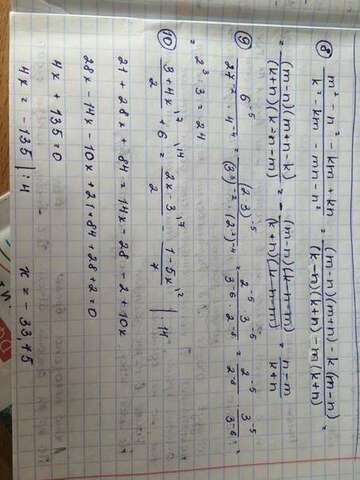 ⑧ (m² - n² - km + kn) / (k² - km - mn - n²) = ((m-n)(m+n) - k(m-n)) / ((k-n)(k+n) - m(k+n)) =
= (m-n)(m+n-k) / (k+n)(k-n-m) = - (m-n)(k-n-m) / (k+n)(k-n-m) = (n-m) / (k+n)
⑨ 6⁻⁵ / (27⁻² · 4⁻⁴) = (2·3)⁻⁵ / ((3³)⁻² · (2²)⁻⁴) = 2⁻⁵ 3⁻⁵ / (3⁻⁶ · 2⁻⁸) = 2⁻⁵ / 2⁻⁸ · 3⁻⁵ / 3⁻⁶ =
= 2³ · 3 = 24
⑩ (3+4x) / 2 \7 + 6 \14 = (2x-3) / 2 \7 - (1-5x) / 7 \2 | · 14
21 + 28x + 84 = 14x - 28 - 2 + 10x
28x - 14x - 10x + 21 + 84 + 28 + 2 = 0
4x + 135 = 0
4x = -135 | : 4 x = -33,75